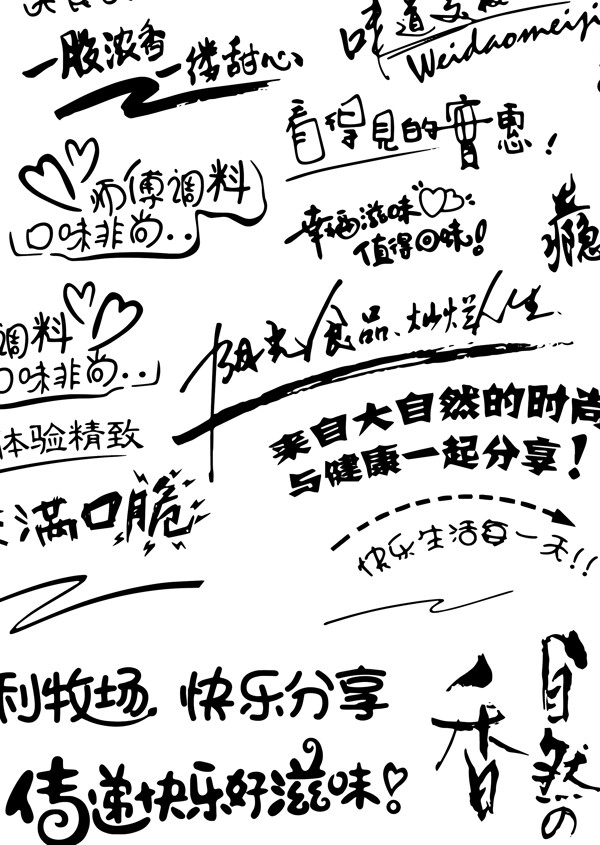 一股浓香
一缕甜心
味道
Weidaomeiji
看得見的實惠!
师傅调料
口味非尚..
幸福滋味
值得回味!
瘾
调料
口味非尚..
阳光食品、灿烂人生
体验精致
来自大自然的时尚
与健康一起分享!
满口脆
快乐生活每一天!!
利牧场, 快乐分享
香
自然の
传递快乐好滋味!